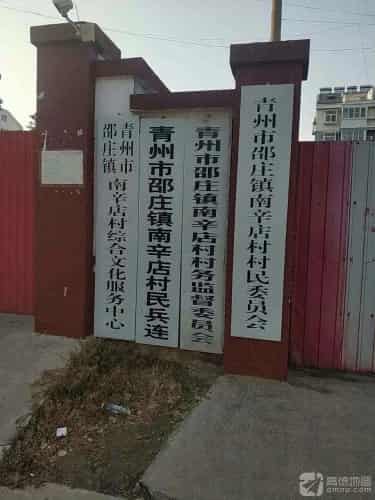 青州市
邵庄镇 南辛店村综合文化服务中心
青州市邵庄镇南辛店村民兵连
青州市邵庄镇南辛店村村务监督委员会
青州市邵庄镇南辛店村村民委员会
高德地图
amap.com